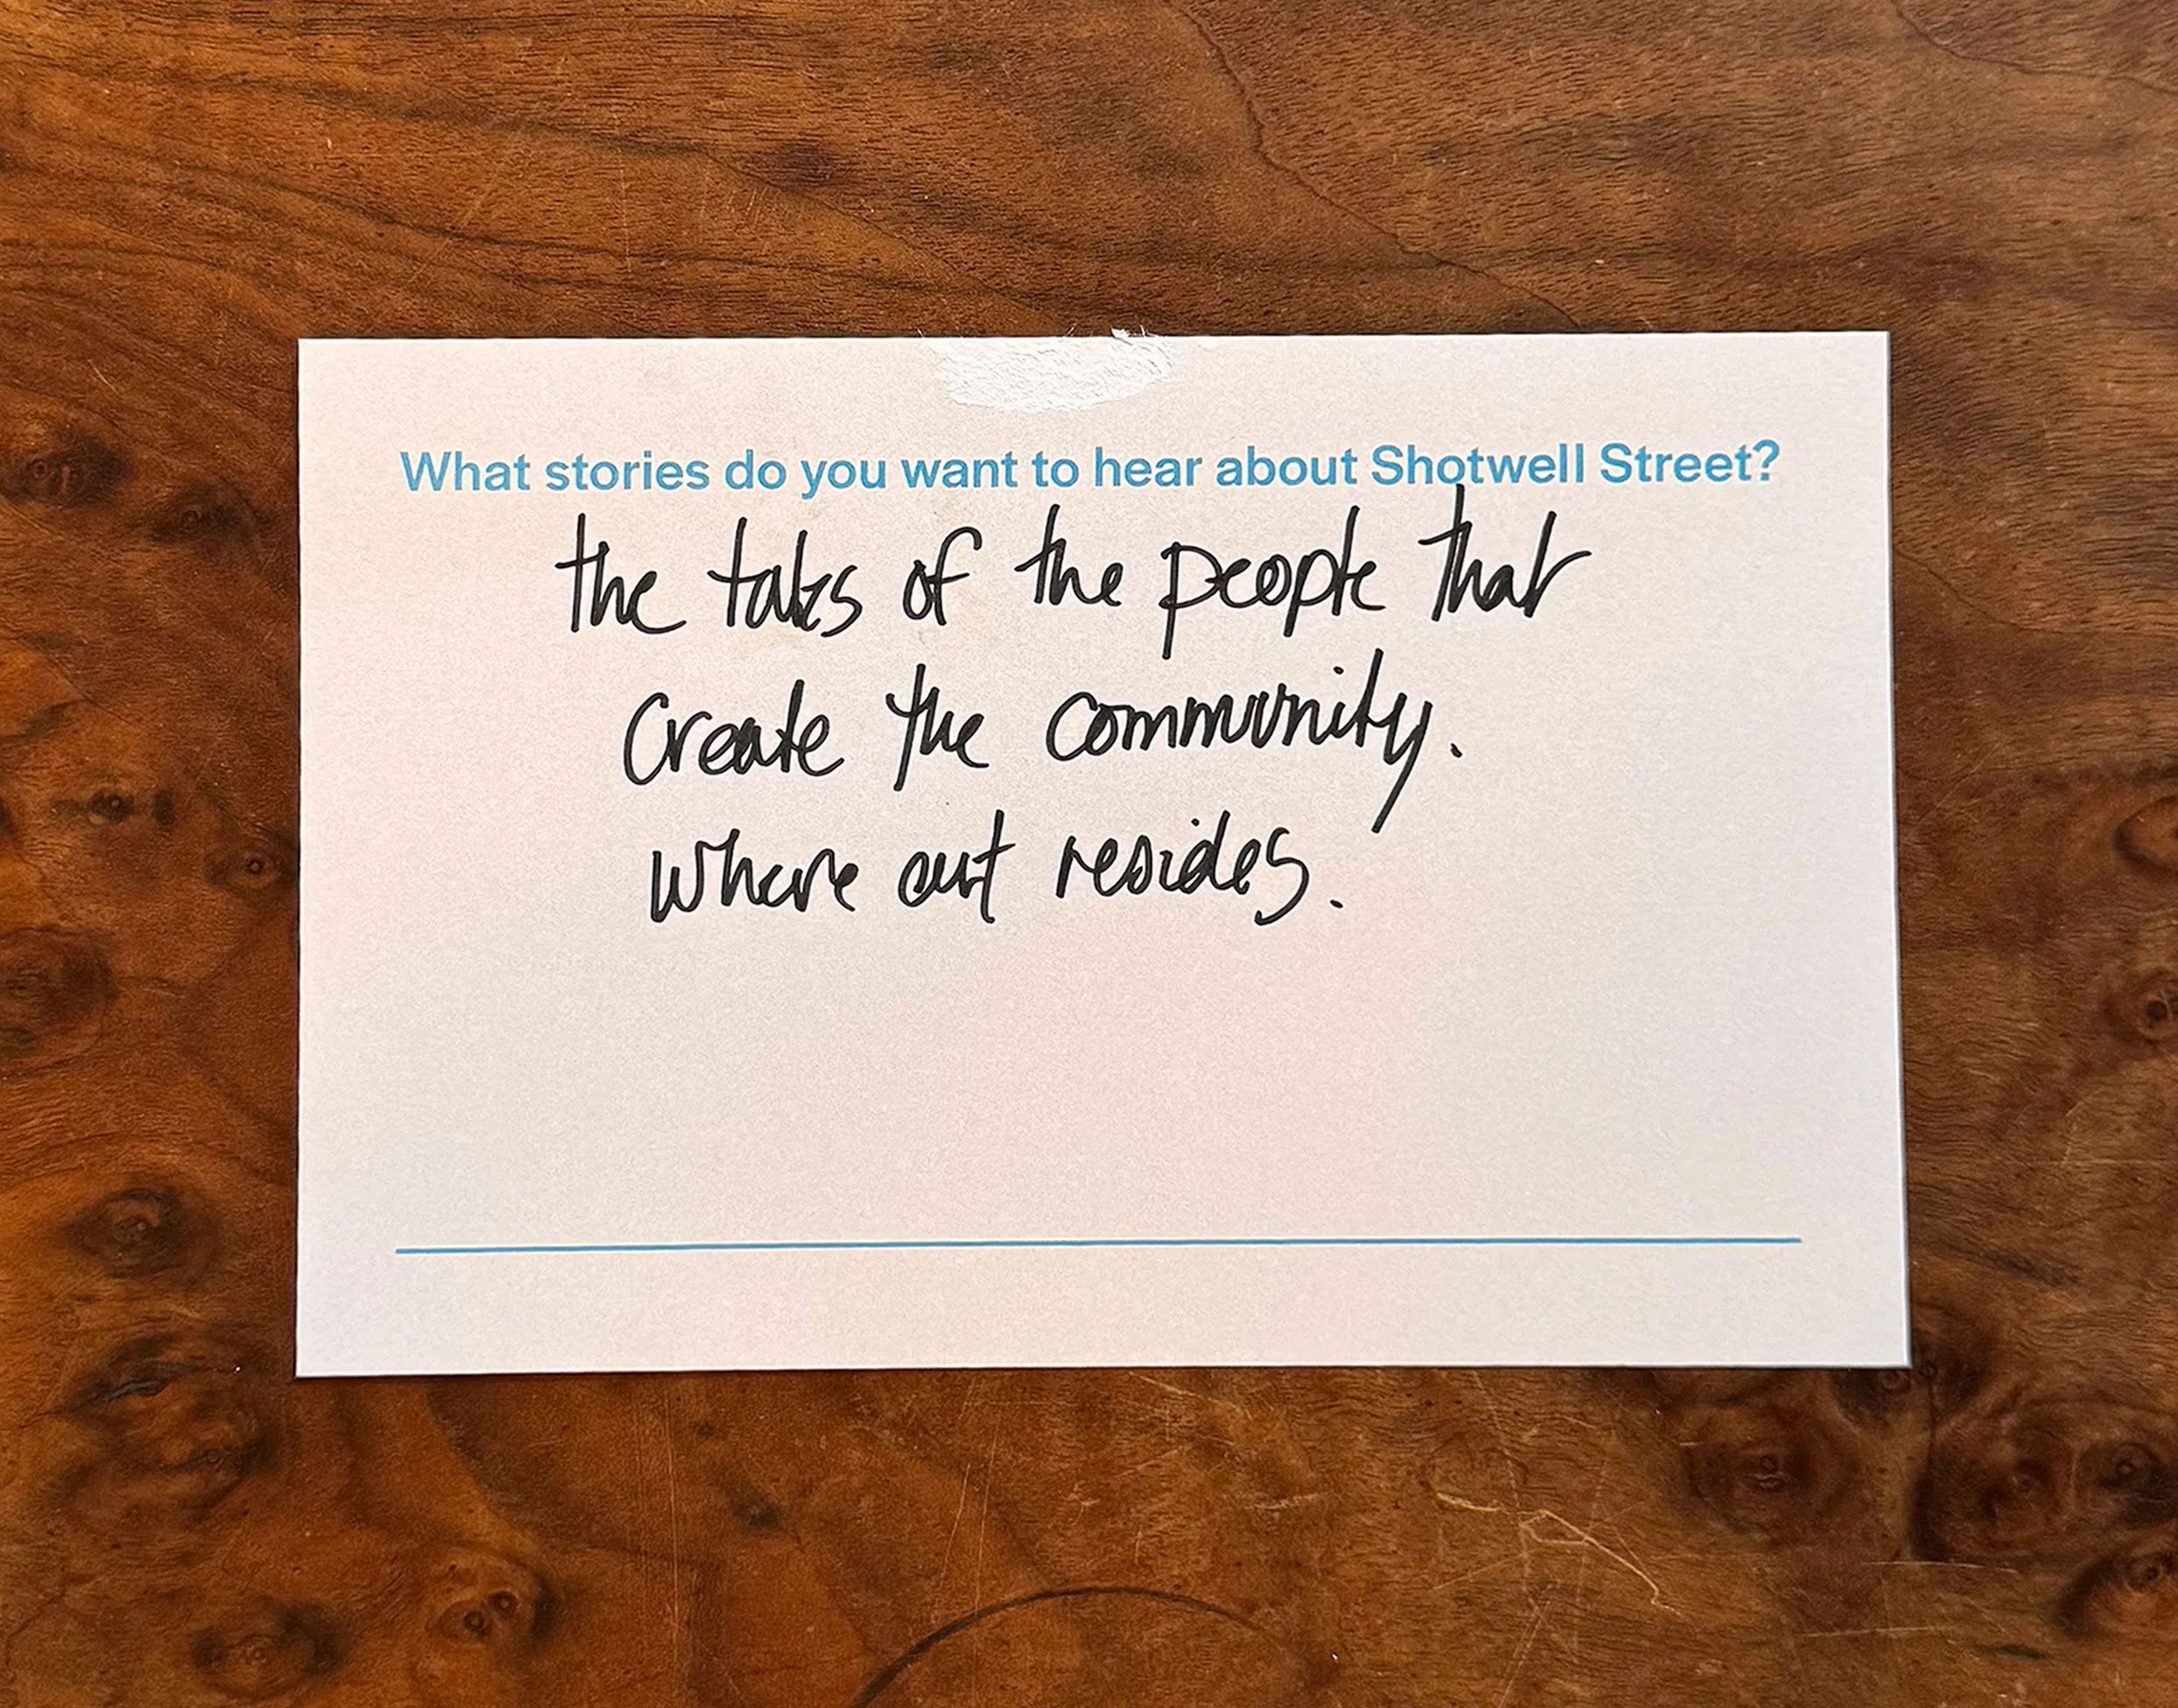 What stories do you want to hear about Shotwell Street?
the tales of the people that
create the community.
where art resides.